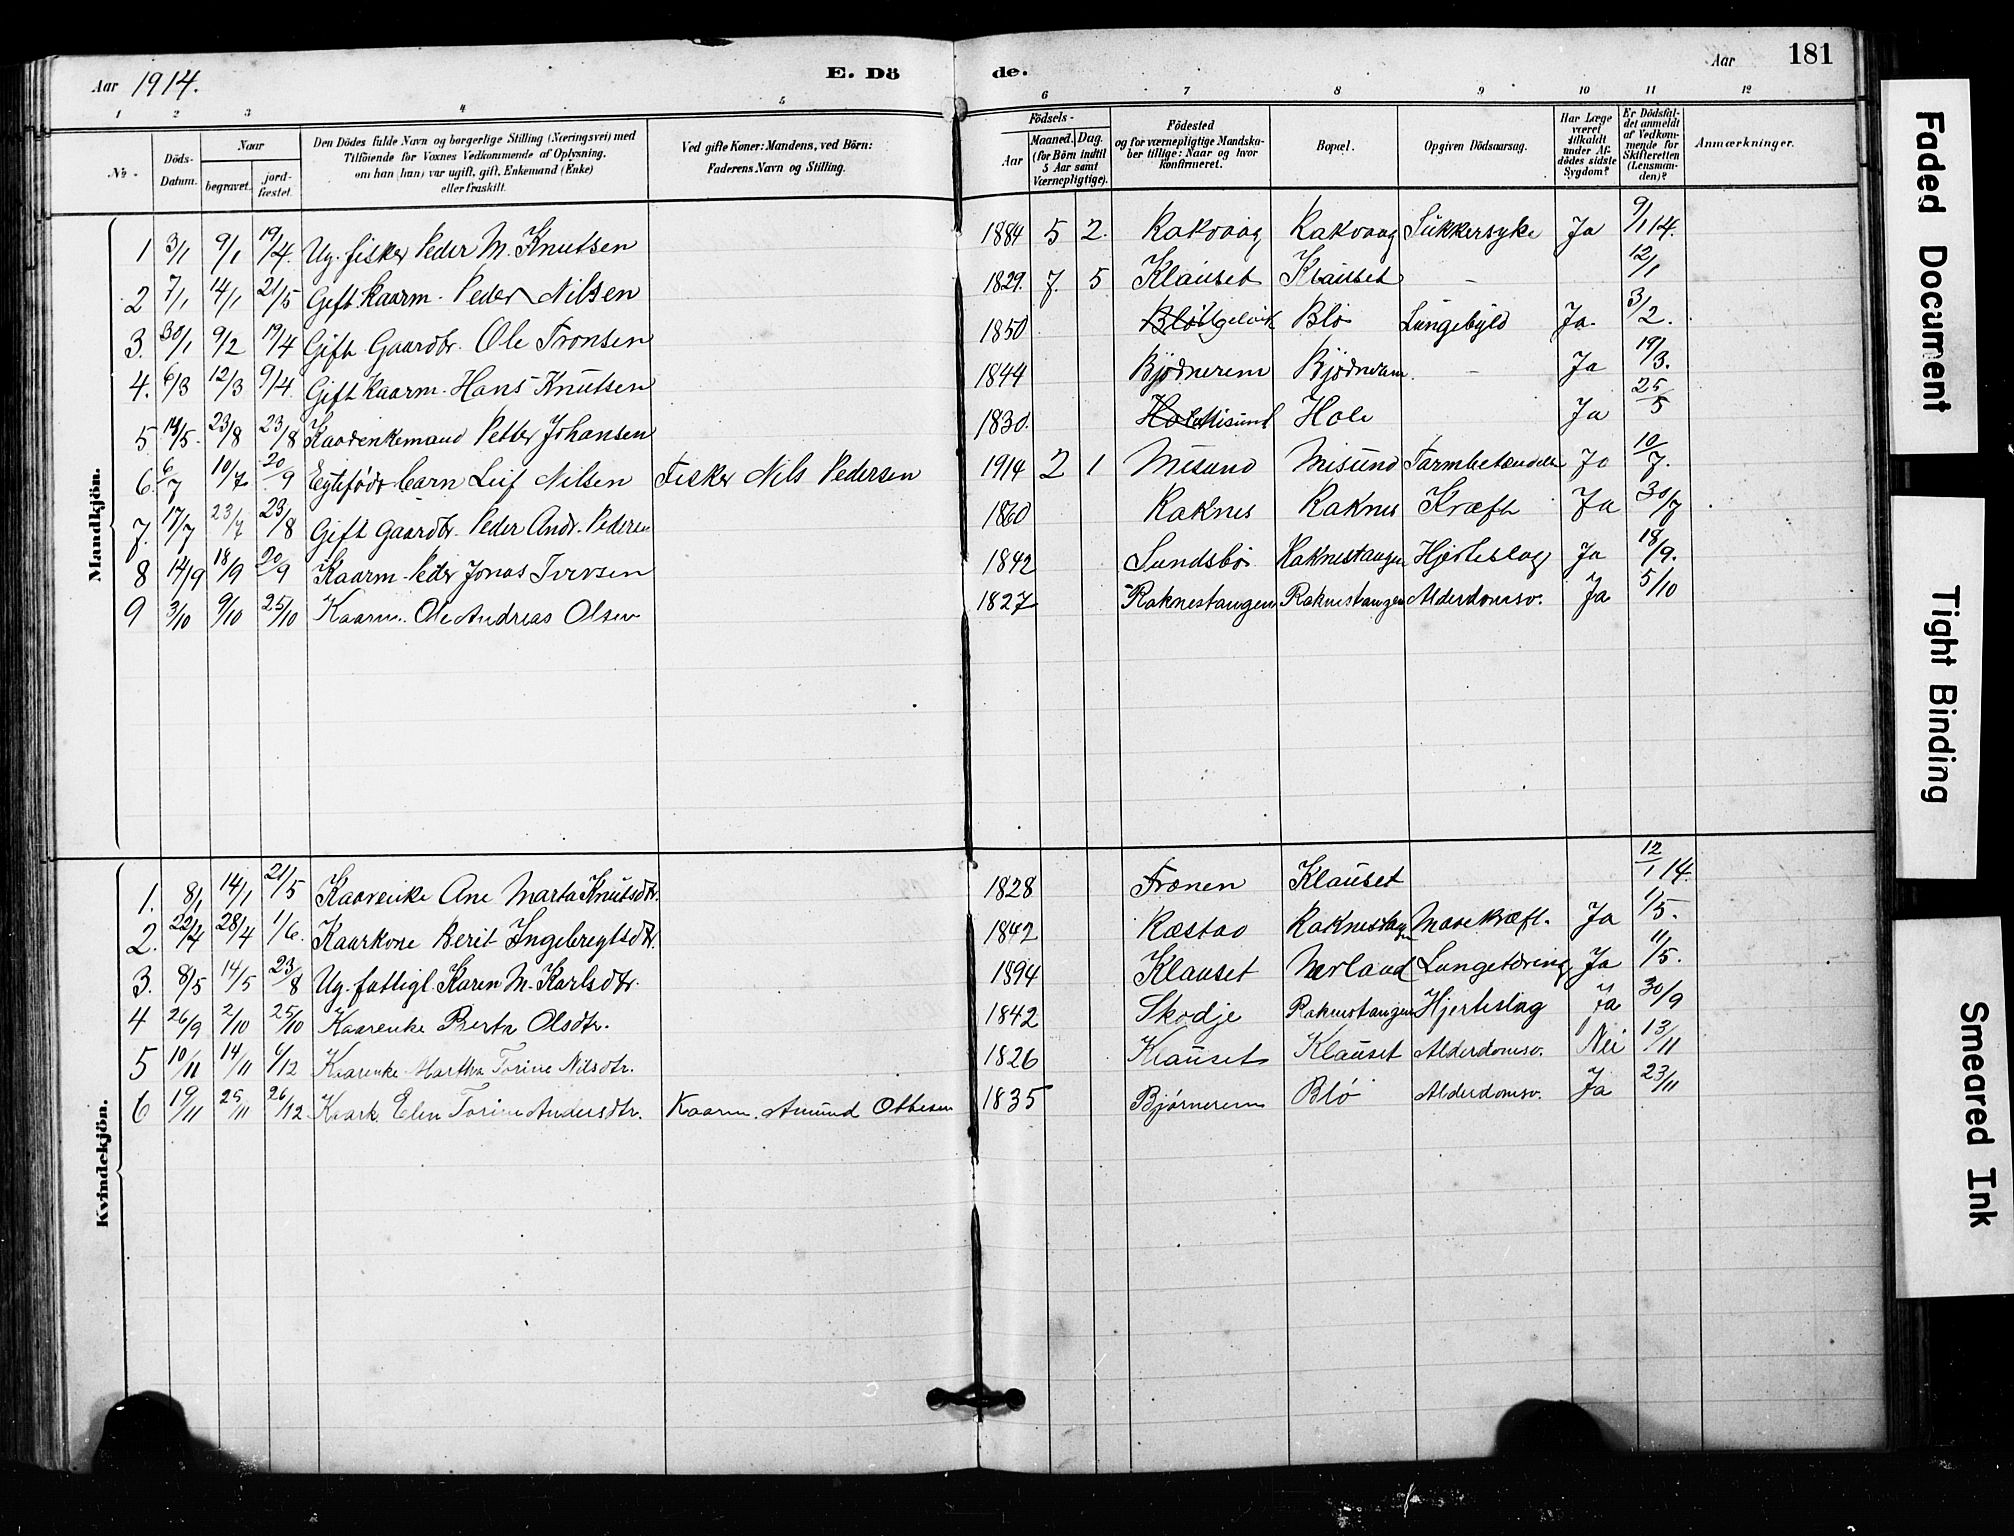 Aar 1914.
E. Dö de.
Aar 181
1 2 3 4 5 6 7 8 9 10 11 12
No
Döds-Datum.
Naar
begravet.
jord-fæstet.
Den Dödes fulde Navn og borgerlige Stilling (Næringsvei) med
Tilföiende for Voxnes Vedkommende af Oplysning,
om han (hun) var ugift, gift, Enkemand (Enke)
eller fraskilt.
Ved gifte Koner: Mandens, ved Börn:
Faderens Navn og Stilling.
Födsels-
Aar
Maaned. Dag.
(for Börn indtil
5 Aar samt
Værnepligtige).
Födested
og for værnepligtige Mandska-
ber tillige: Naar og hvor
konfirmeret.
Bopæl.
Opgiven Dödsaarsag.
Har Læge
været
tilkaldt
under Af-
dødes sidste
Sygdom?
Er Dödsfal-
det anmeldt
af Vedkom-
mende for
Skifteretten
(Lensman-
den)?
Anmærkninger.
Mandkjön.
1 3/1 9/1 19/4. Ug. fisker Peder M. Knutsen 1884 5 2. Rakvaag Rakvaag Sukkersyke Ja 9/1 14.
2 7/1 14/1 21/5 Gift kaarm. Peder Nilsen 1829. 7. 5 Klauset Klauset - 12/1
3. 30/1 9/2 19/4 Gift Gaardbr. Ole Tronsen 1850 Blö Blö Lungebyld Ja. 3/2.
4. 6/3 12/3 9/4. Gift kaarm. Hans Knutsen 1844 Bjödnerem - Ja 19/3.
5 18/5. 23/8 23/8 Kaarenkemand Petter Johansen 1830. Hole Misund Hole Ja 25/5
6. 6/7 10/7 20/9 Egtefödt barn Leif Nilsen Fisker Nils Pedersen 1914 2 1 Misund Misund Tarmbetændelse Ja 10/7.
7. 17/7 23/7 23/8 Gift Gaardbr. Peder Andr. Pedersen 1860 Raknes Raknes Kræft Ja 30/7
8 14/9 18/9 20/9 Kaarm. Peder Jonas Iversen 1842 Sundsbö Raknestangen Hjerteslag Ja 18/9.
9 3/10 9/10 25/10 Kaarm. Ole Andreas Olsen 1827 Raknestangen Raknestangen Alderdomssv. Ja 5/10
Kvindekjön.
1. 8/1 14/1 21/5 Kaarenke Ane Marta Knutsdtr. 1828 Trønen Klauset 12/1 14.
2. 22/4 28/4 1/6. Kaarkone Berit Ingebregtsdtr. 1842 Ræstad Raknestangen Mavekræft. Ja 1/5.
3. 8/5 14/5 23/8 Ug. fattigl. Karen M. Karlsdtr. 1894 Klauset Nerland Lungetæring Ja 11/5.
4 26/9 2/10 25/10 Kaarenke Berta Olsdtr. 1842 Skodje Raknestangen Hjerteslag Ja 30/9
5 10/11 14/11 6/12 Kaarenke Martha Torine Nilsdtr. 1826 Klauset Klauset Alderdomsv. Nei 13/11
6 19/11 25/11 26/12 Kaark. Elen Torine Andersdtr. Kaarm. Amund Ottesen 1835 Bjørnerem Blö Alderdomsv. Ja 23/11
Faded Document
Tight Binding
Smeared Ink